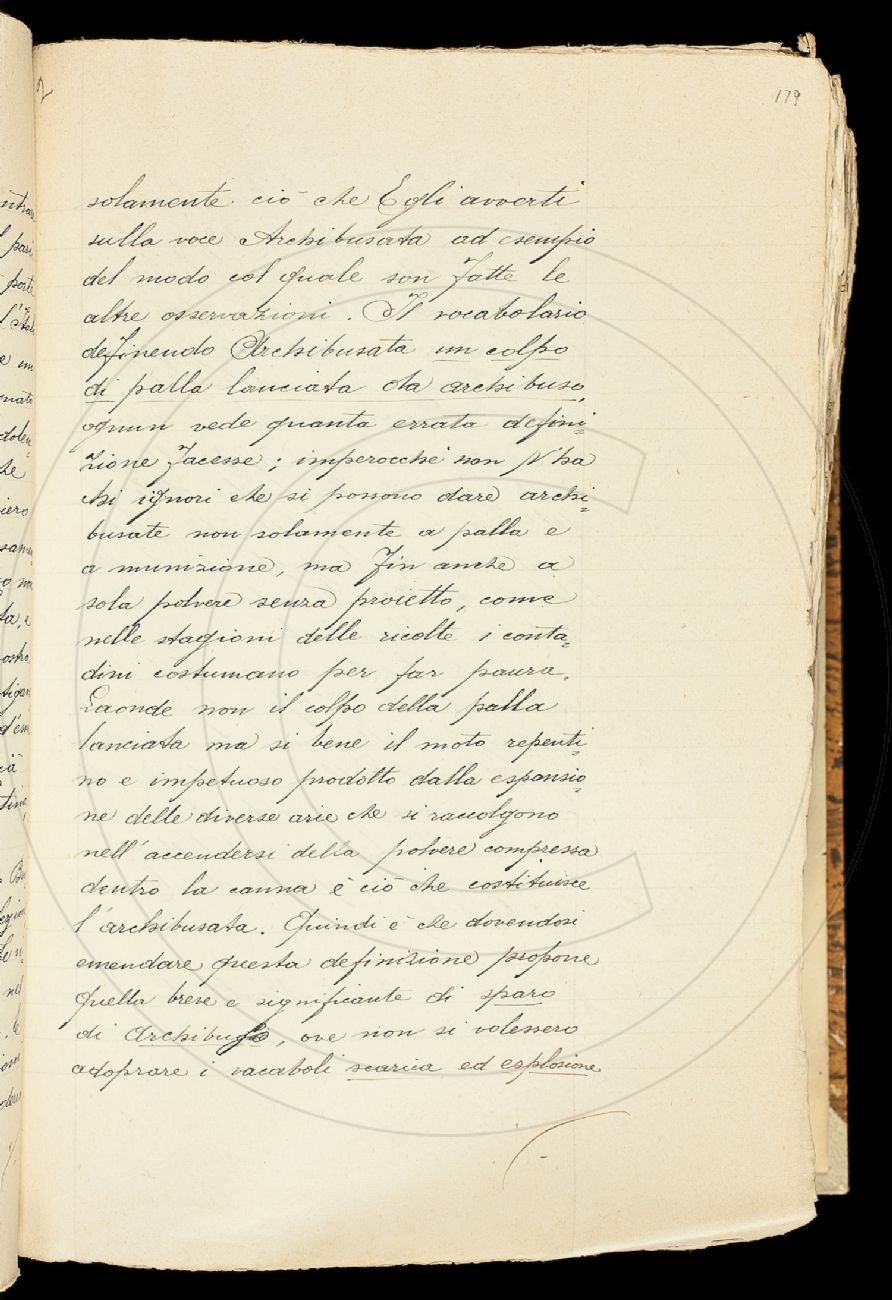 2
179
solamente ciò che Egli avvertì
sulla voce Archibusata ad esempio
del modo col quale son fatte le
altre osservazioni. Il vocabolario
definendo Archibusata un colpo
di palla lanciata da archibuso,
ognun vede quanta errata defini=
zione facesse; imperocché non v'ha
chi ignori che si possono dare archi=
busate non solamente a palla e
a munizione, ma fin anche a
sola polvere senza proietto, come
nelle stagioni delle ricolte i conta=
dini costumano per far paura.
Laonde non il colpo della palla
lanciata ma si bene il moto repenti=
no e impetuoso prodotto dalla espansio=
ne delle diverse arie che si raccolgono
nell'accendersi della polvere compressa
dentro la canna è ciò che costituisce
l'archibusata. Quindi è che dovendosi
emendare questa definizione propone
quella breve e significante di sparo
di Archibuso, ove non si volessero
adoprare i vacaboli scarica ed esplosione